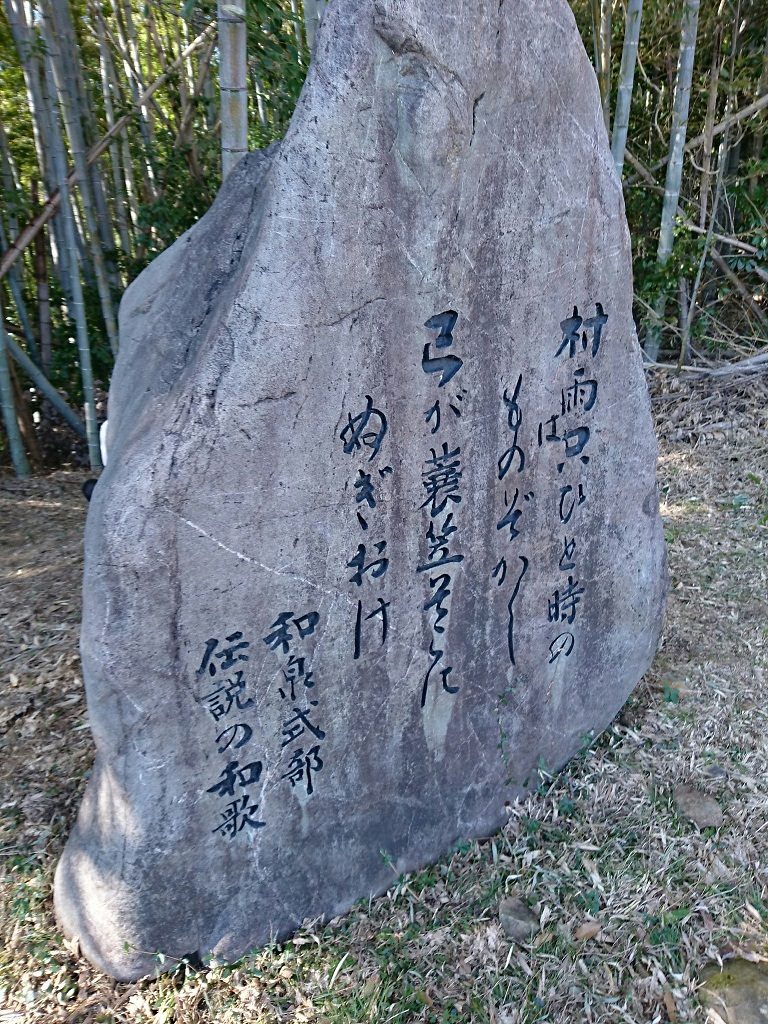 村雨は只ひと時の
ものぞかし
己が蓑笠そこに
ぬぎおけ
和泉式部
伝説の和歌